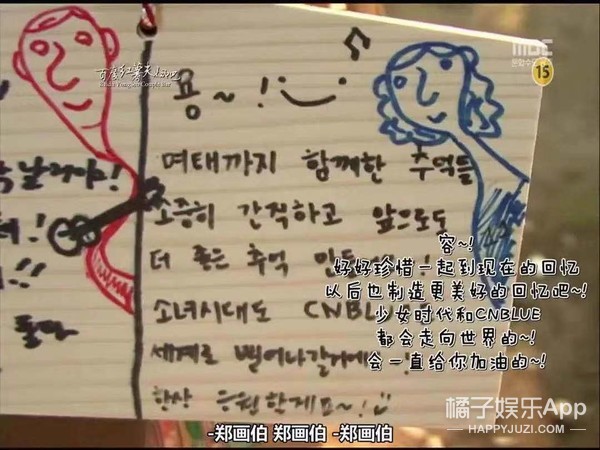 百度红薯夫妇吧
MBC
문화수도
15
용~!
여태까지 함께한 추억들
소중히 간직하고 앞으로도
더 좋은 추억
소녀시대도 CNBL
세계로 뻗어나갈거에
항상 응원할게요~!
容~!
好好珍惜一起到现在的回忆
以后也制造更美好的回忆吧~!
少女时代和CNBLUE
都会走向世界的~!
会一直给你加油的~!
-郑画伯 郑画伯 -郑画伯
橘子娱乐App
HAPPYJUZI.COM